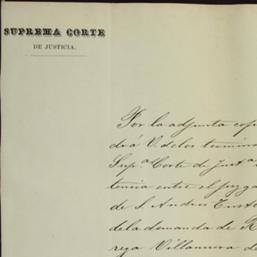 SUPREMA CORTE
DE JUSTICIA.
Por la adjunta cop
drá V. de los termin
Sup.ª Corte de Just.ª
tencia entre el juzg
de S. Andres Tuxt
de la demanda de R
reja Villanueva de